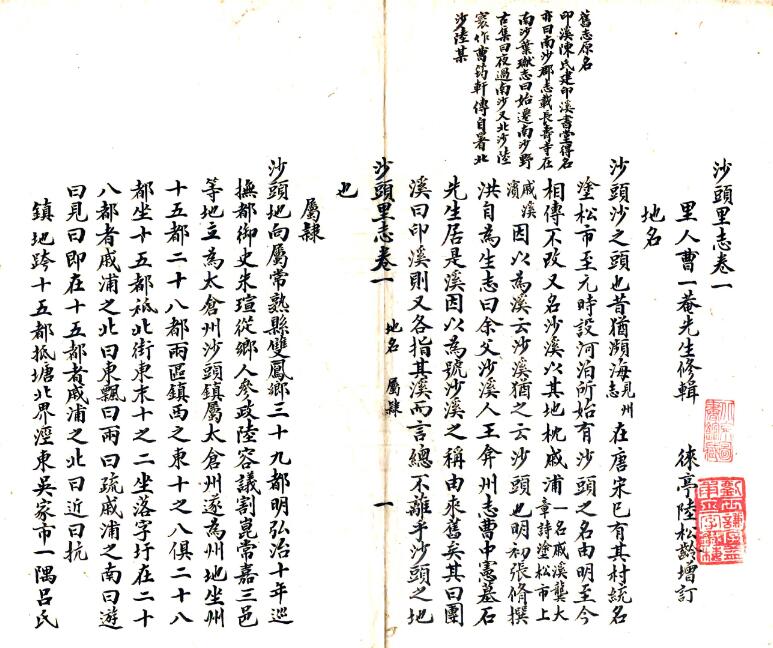 沙頭里志卷一
里人曹一菴先生修輯　　徠亭陸松齡增訂
地名
沙頭沙之頭也昔猶瀕海見州志在唐宋已有其村統名
塗松市至元時設河泊所始有沙頭之名由明至今
相傳不改又名沙溪以其地枕戚浦一名戚溪龔大章詩塗松市上
戚溪濱因以為溪云沙溪猶之云沙頭也明初張脩撰
洪自為生志曰余父沙溪人王弇州志曹中憲墓石
先生居是溪因以為號沙溪之稱由來舊矣其曰團
溪曰印溪則又各指其溪而言總不離乎沙頭之地
舊志原名
印溪陳氏建印溪書堂得名
亦曰南沙郡志載長壽寺在
南沙葉璵志曰始遷南沙野
古集曰夜過南沙又北沙陸
寰作曹筠軒傳自署北
沙陸某
沙頭里志卷一　　地名　屬隸　　一
也
屬隸
沙頭地向屬常熟縣雙鳳鄉三十九都明弘治十年巡
撫都御史朱瑄從鄉人參政陸容議割崑常嘉三邑
等地立為太倉州沙頭鎮屬太倉州遂為州地坐州
十五都二十八都兩區鎮西之東十之八俱二十八
都坐十五都祗北街東末十之二坐落字圩在二十
八都者戚浦之北曰東飄曰雨曰疏戚浦之南曰遊
曰見曰即在十五都者戚浦之北曰近曰抗
鎮地跨十五都抵塘北界涇東吳家市一隅呂氏